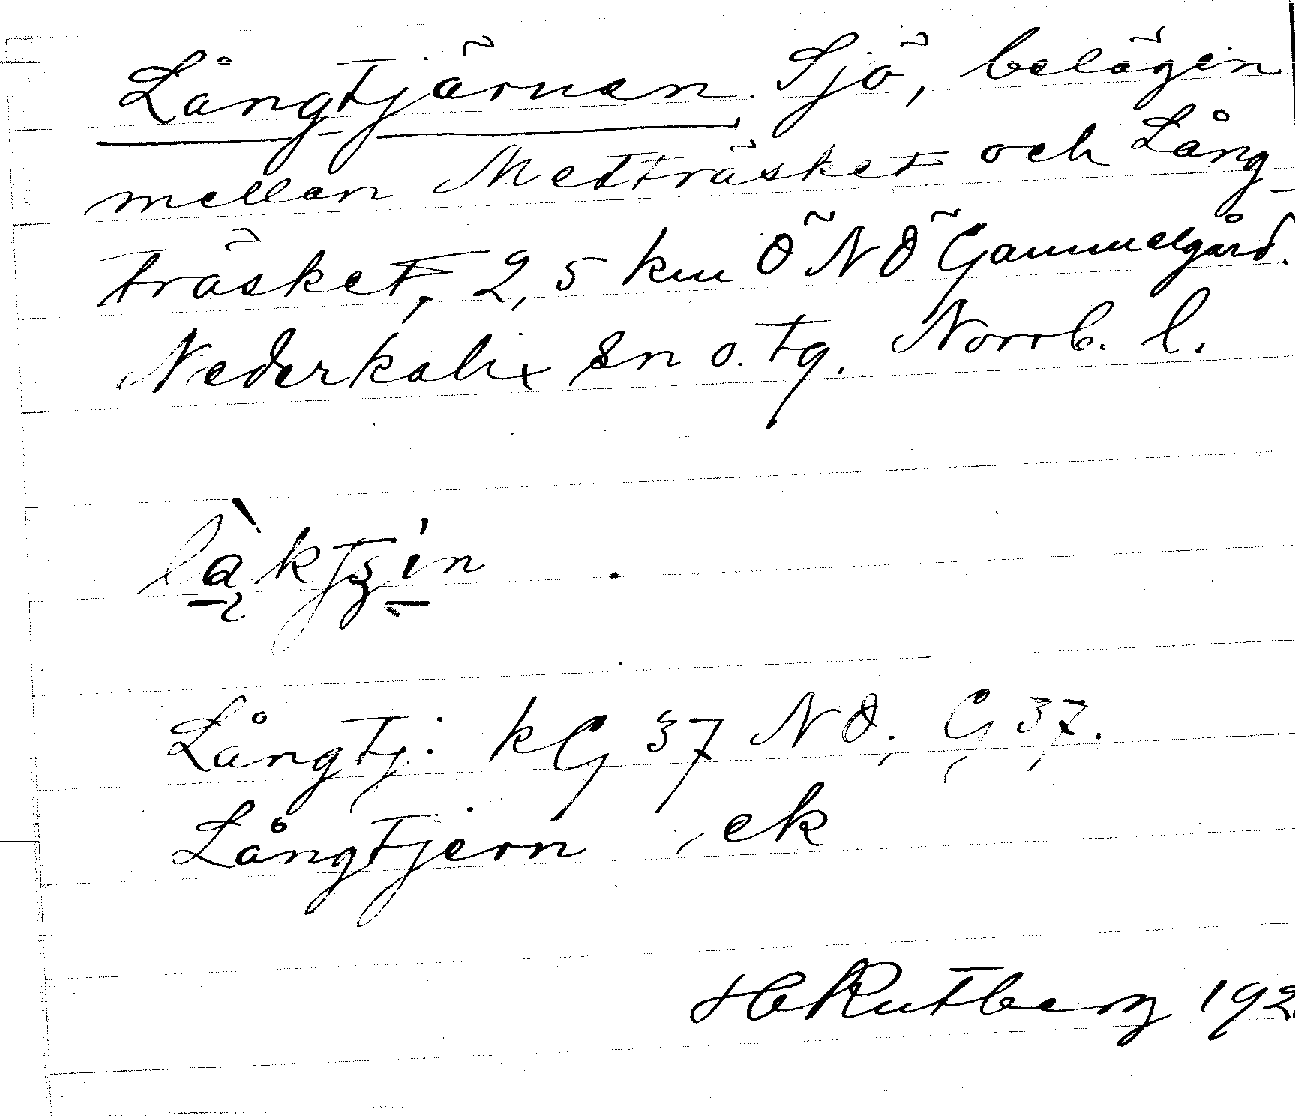 Långtjärnen. Sjö, belägen
mellan Metträsket och Lång-
träsket, 2,5 km ÖNÖ Gammelgård.
Nederkalix sn o. tg. Norrb. l.
Långtj. kG 37 NO, G 37.
Långtjern , ek
H Rutberg 192